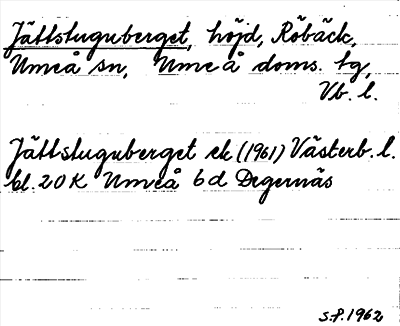 Jättstuguberget, höjd, Röbäck,
Umeå sn, Umeå doms. tg,
Vb. l.
Jättstuguberget ek (1961) Västerb. l.
bl. 20 K Umeå 6 d Degernäs
S.P. 1962